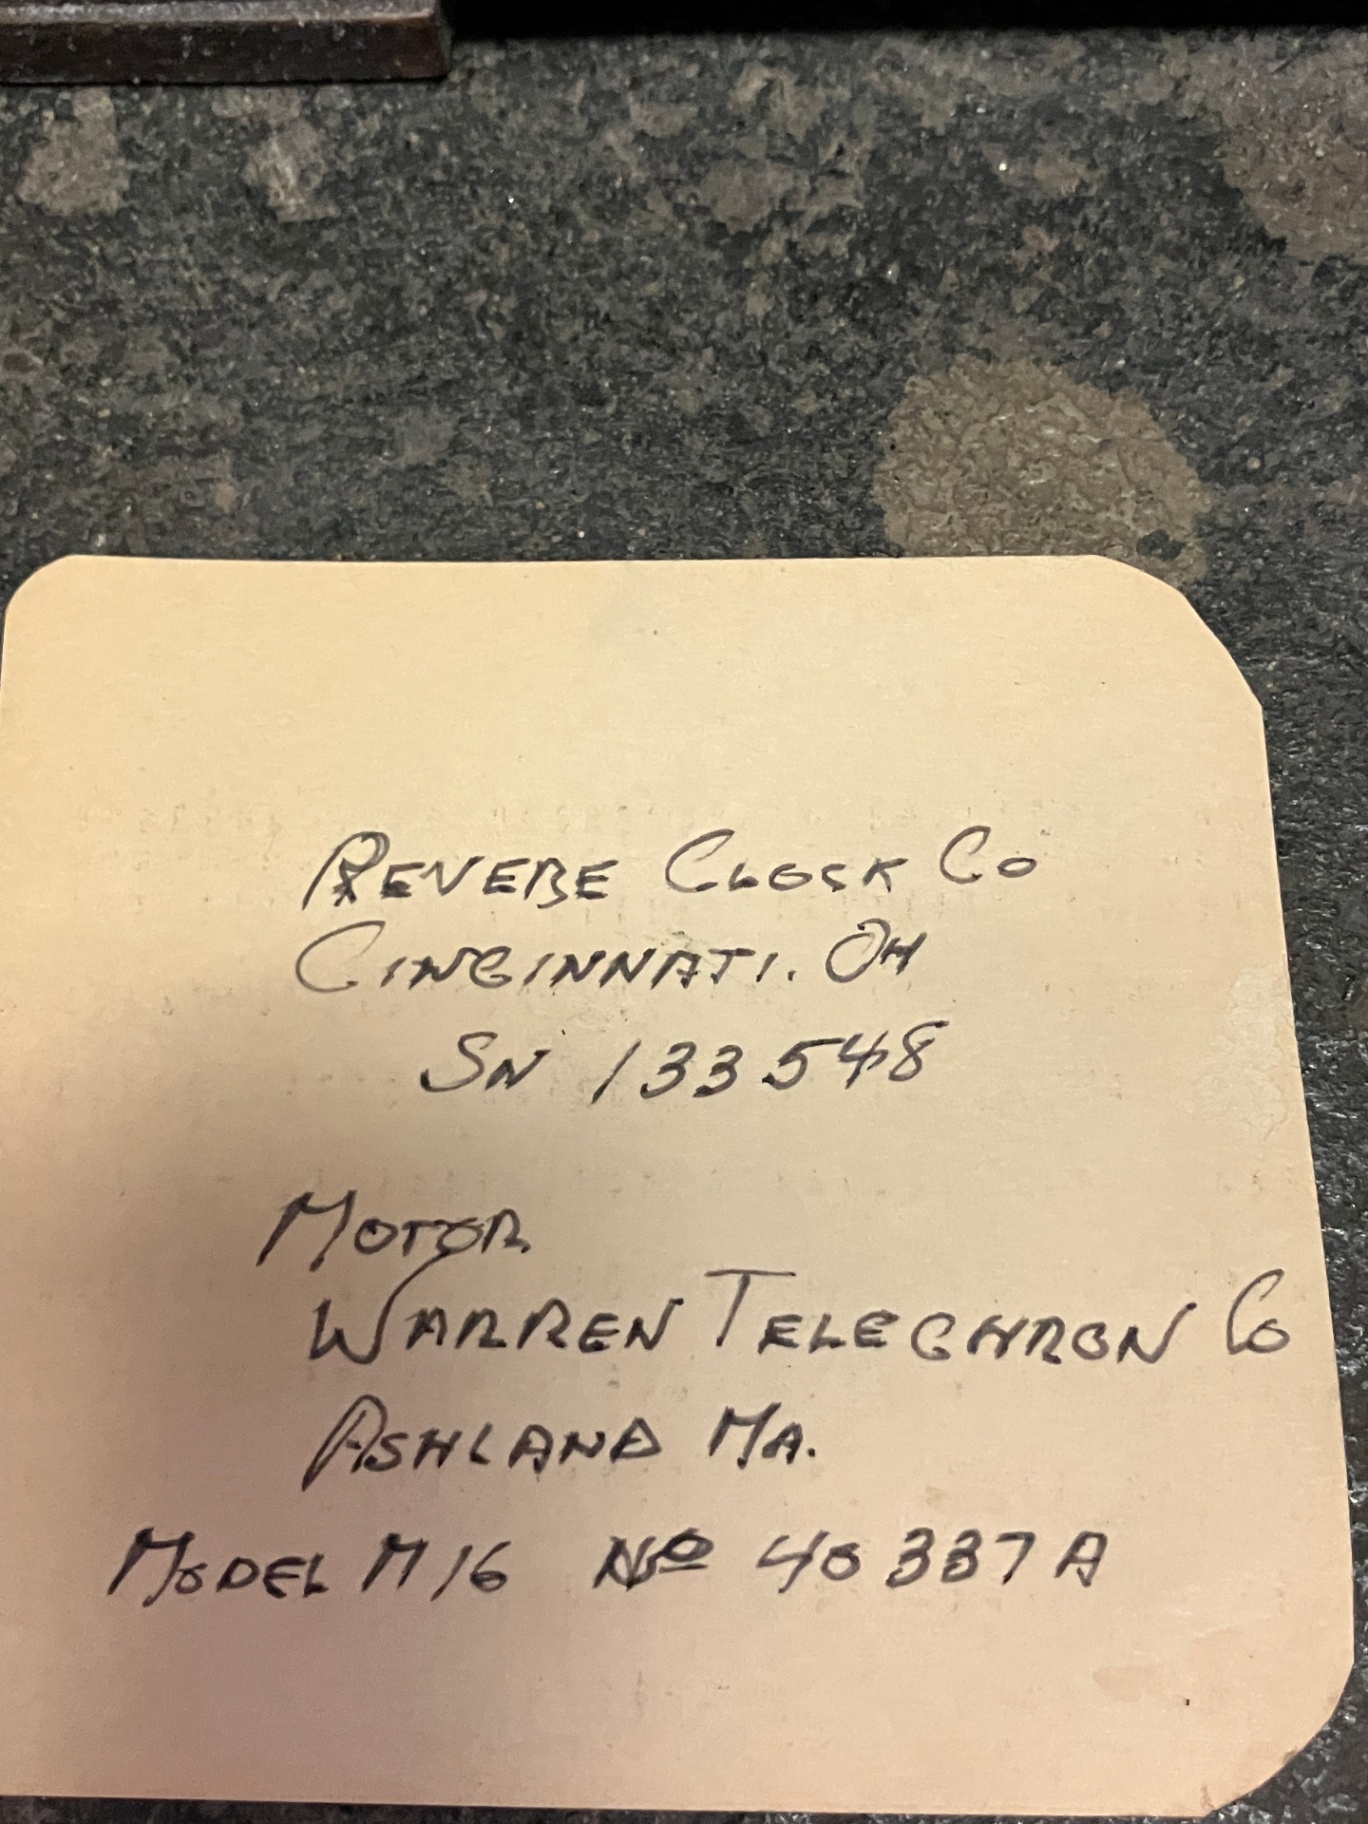 REVERE CLOCK CO
CINCINNATI. OH
SN 133548
MOTOR
WARREN TELECHRON CO
ASHLAND MA.
MODEL M16 Nº 40337A